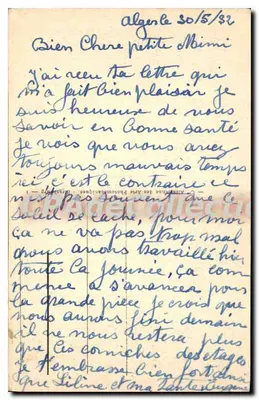 Alger le 30/5/32
Bien Chere petite Mimi
J'ai recu ta lettre qui
m'a fait bien plaisir je
suis heureuse de vous
savoir en bonne santé
Je vois que vous avez
toujours mauvais temps
ici c'est le contraire ce
n'est pas souvent que le
soleil se cache, pour moi
ça ne va pas trop mal
nous avons travaillé hier
toute la journée, ça com
mence a s'avancer pour
la grande pièce je crois que
nous aurons fini demain
il ne nous restera plus
que les corniches des étages
je t'embrasse bien fort ainsi
que Liline et ma tante